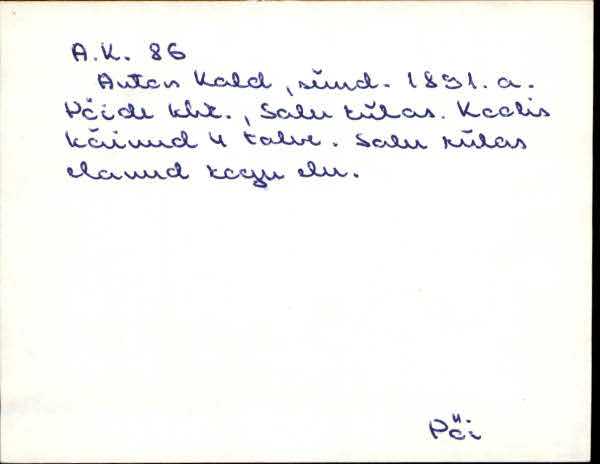 A.K. 86
Anton Kald, sünd. 1891. a.
Pöide khk., Salu külas. Koolis
käinud 4 talve. Salu külas
elanud kogu elu.
Pöi